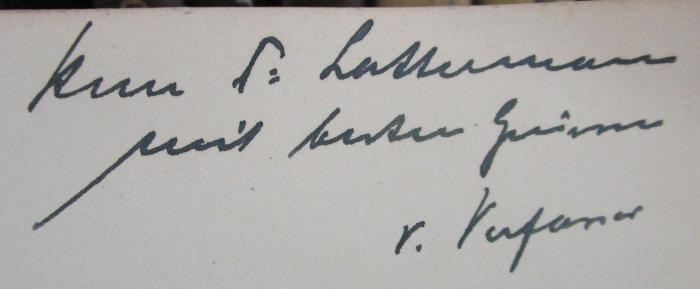 Herrn Dr. Lattermann
mit besten Grüssen
v. Verfasser